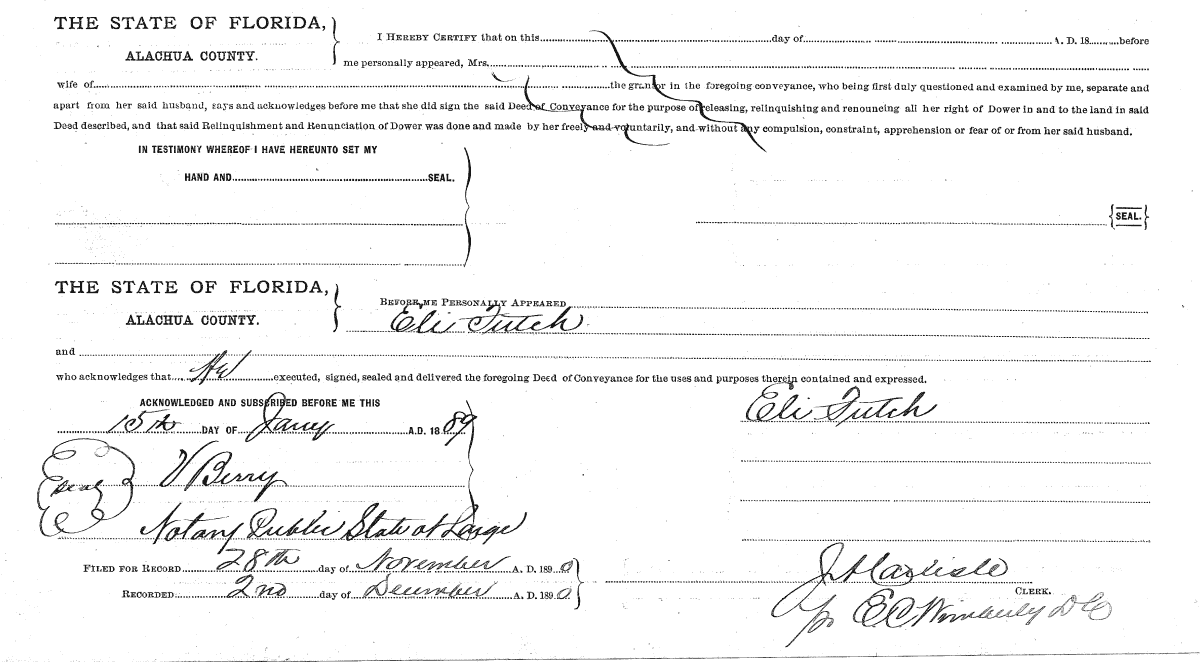 THE STATE OF FLORIDA,
ALACHUA COUNTY.
I HEREBY CERTIFY that on this day of A. D. 18 before
me personally appeared, Mrs.
wife of the grantor in the foregoing conveyance, who being first duly questioned and examined by me, separate and
apart from her said husband, says and acknowledges before me that she did sign the said Deed of Conveyance for the purpose of releasing, relinquishing and renouncing all her right of Dower in and to the land in said
Deed described, and that said Relinquishment and Renunciation of Dower was done and made by her freely and voluntarily, and without any compulsion, constraint, apprehension or fear of or from her said husband.
IN TESTIMONY WHEREOF I HAVE HEREUNTO SET MY
HAND AND SEAL.
SEAL.
THE STATE OF FLORIDA,
ALACHUA COUNTY.
BEFORE ME PERSONALLY APPEARED
Eli Futch
and
who acknowledges that He executed, signed, sealed and delivered the foregoing Deed of Conveyance for the uses and purposes therein contained and expressed.
ACKNOWLEDGED AND SUBSCRIBED BEFORE ME THIS
Eli Futch
15th DAY OF Jany A.D. 1889
Seal
V Berry
Notary Public State at Large
FILED FOR RECORD 28th day of November A. D. 1890
RECORDED 2nd day of December A. D. 1890
J H Carlisle
CLERK.
pr E C Wimberly D C